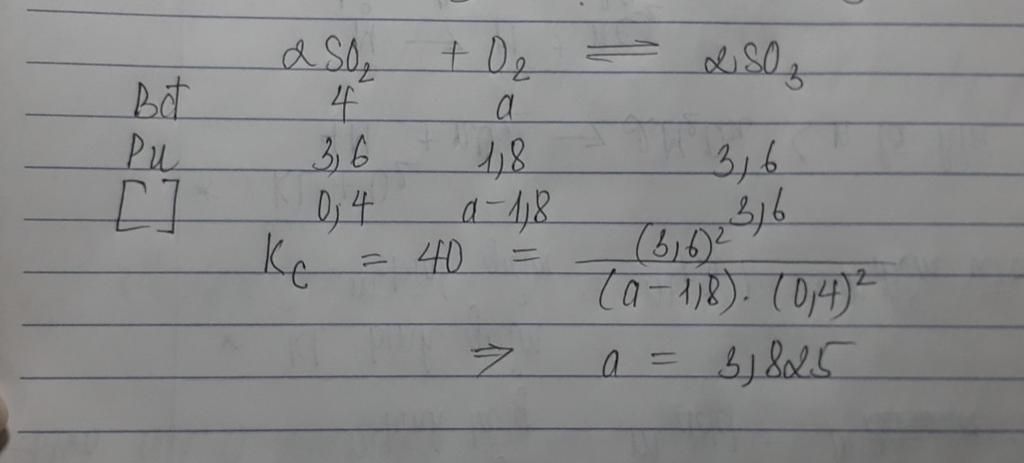 2SO₂ + O₂ ⇌ 2SO₃
Bđ 4 a
Pư 3,6 1,8 3,6
[ ] 0,4 a-1,8 3,6
K_C = 40 = (3,6)² / (a-1,8).(0,4)²
⇒ a = 3,825